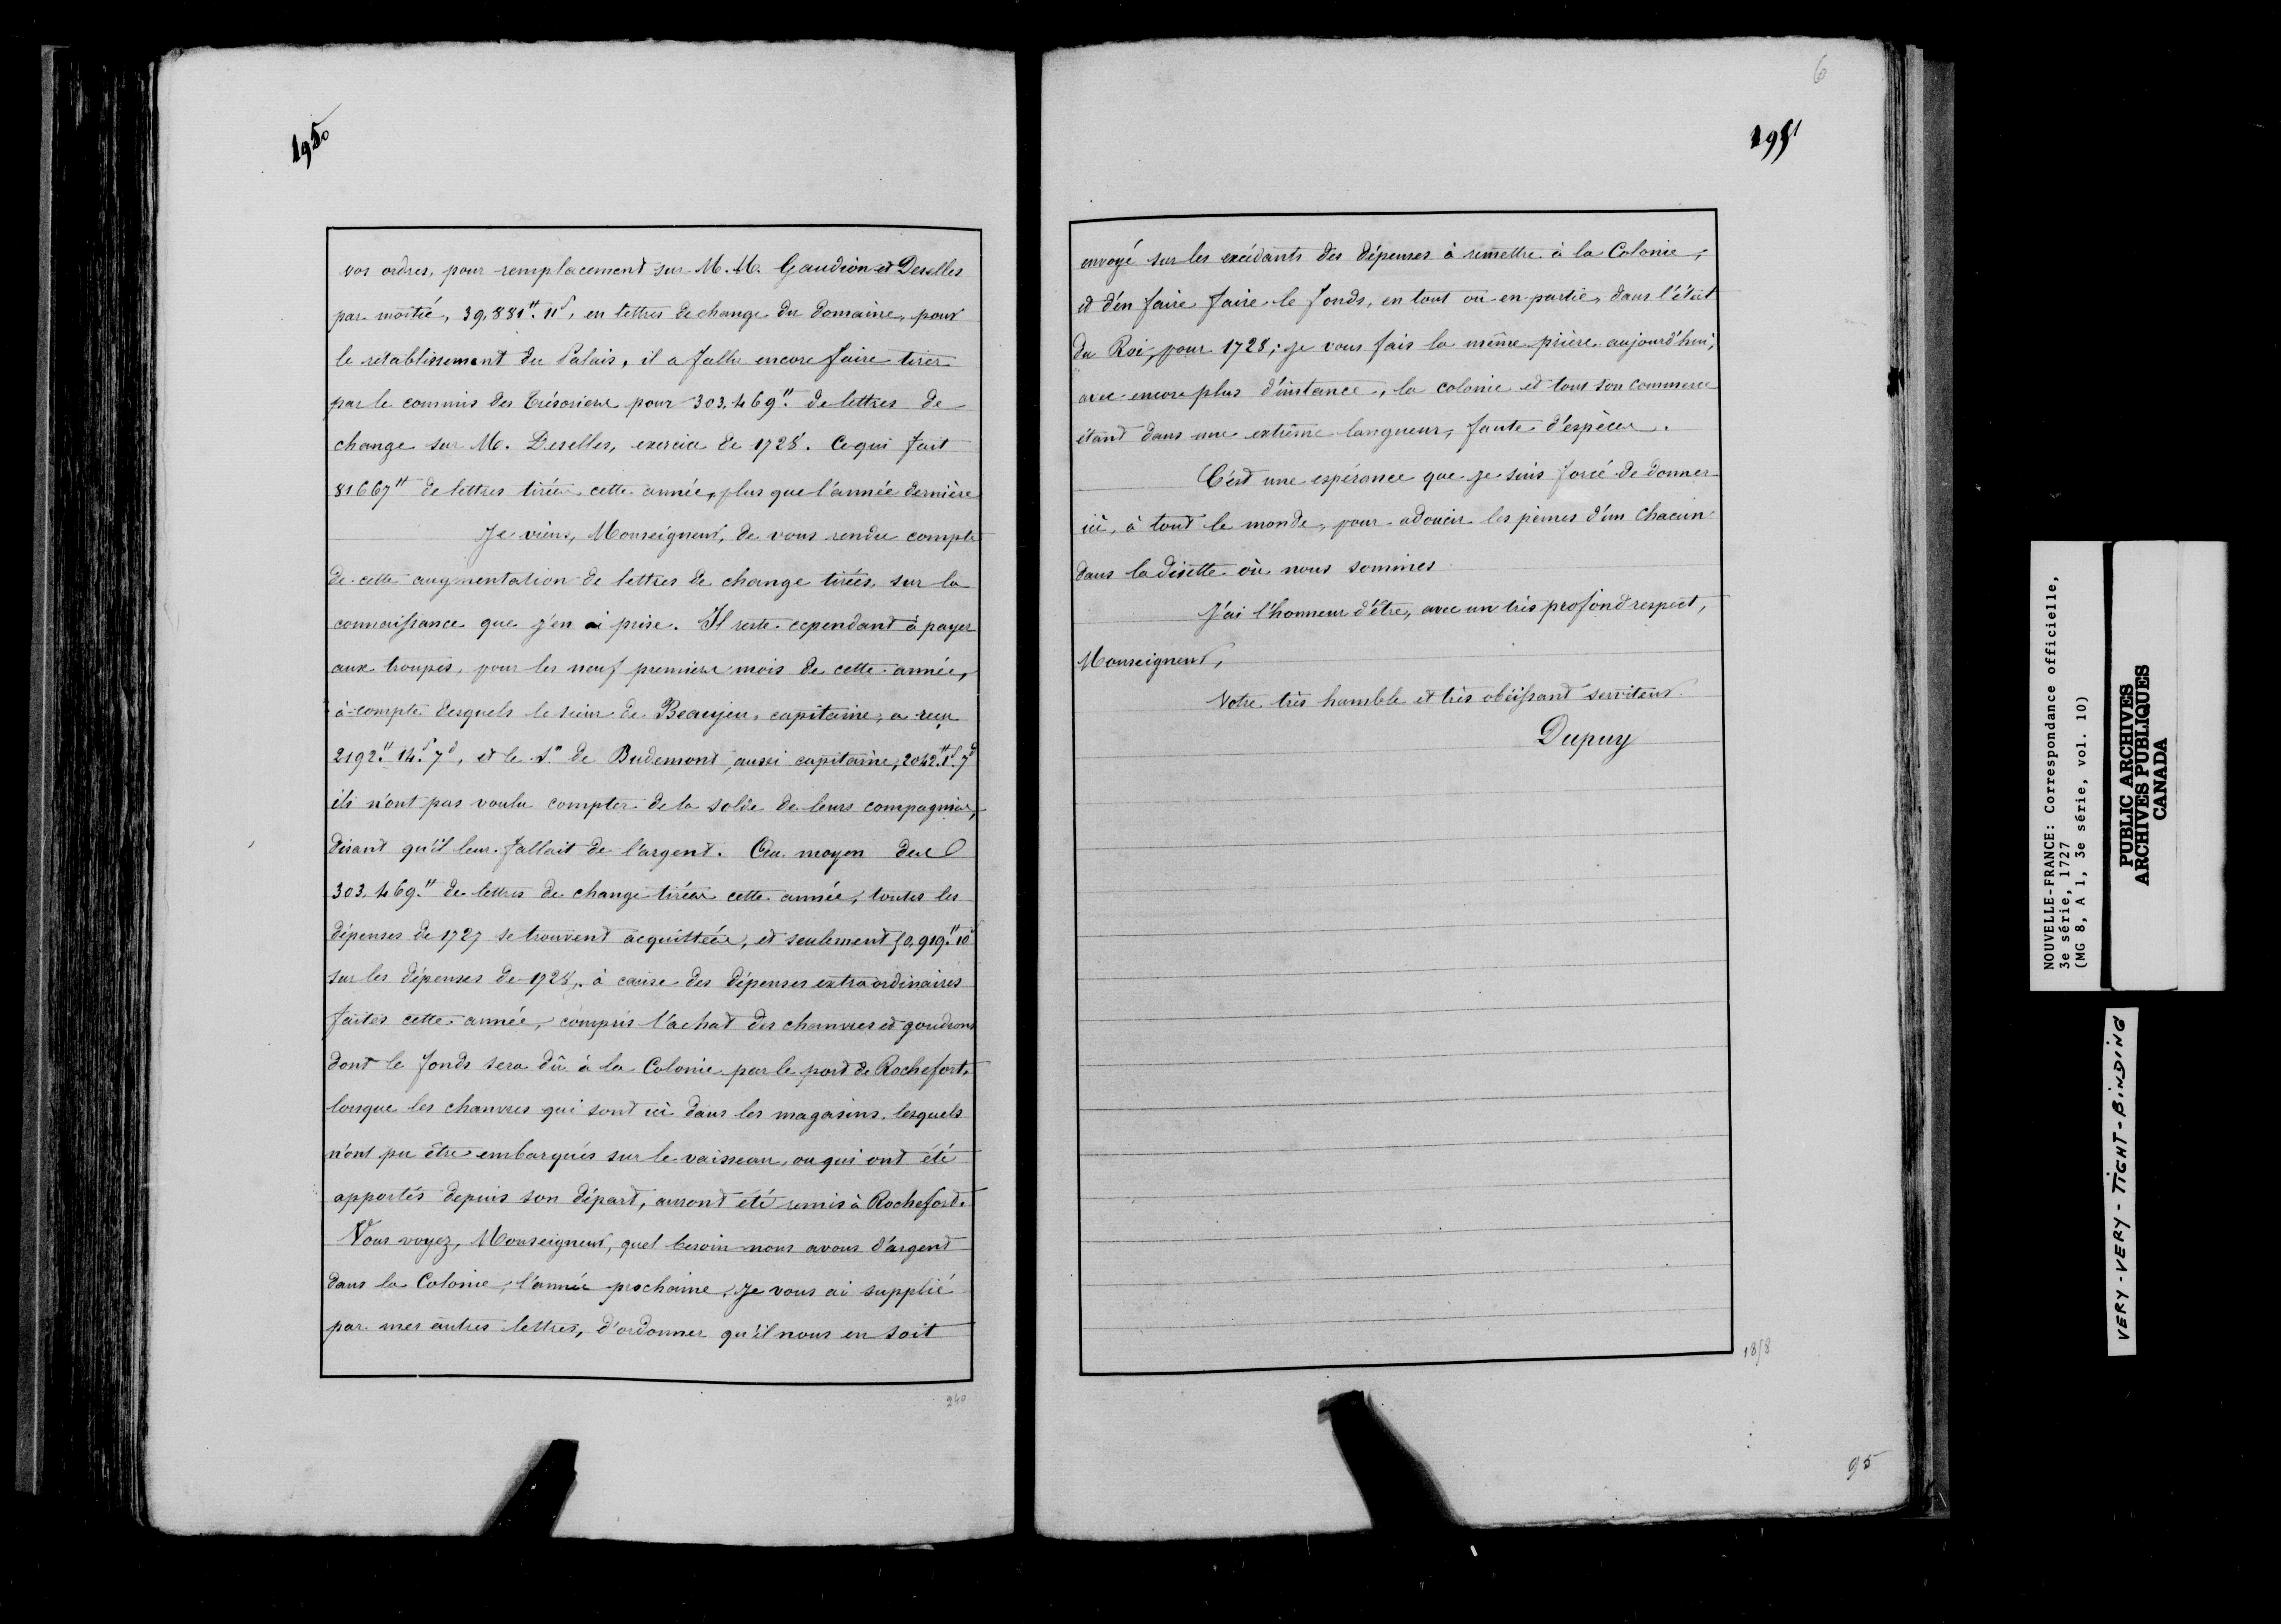 1950
vos ordres, pour remplacement sur M. M. Gaudion et Deselles
par moitié, 39,881#. 11s, en lettres de change du domaine, pour
le rétablissement du Palais, il a fallu encore faire tirer
par le commis des Trésoriers pour 303,469#. de lettres de
change sur M. Deselles, exercice de 1728. Ce qui fait
81667# de lettres tirées cette année, plus que l'année dernière
Je viens, Monseigneur, de vous rendre compte
de cette augmentation de lettres de change tirées, sur la
connaissance que j'en ai prise. Il reste cependant à payer
aux troupes, pour les neuf premiers mois de cette année,
à-compte desquels le sieur de Beaujeu, capitaine, a reçu
2192.# 14.s 7d, et le Sr de Budemont, aussi capitaine, 2042.# 1s. 7d
ils n'ont pas voulu compter de la solde de leurs compagnies,
disant qu'il leur fallait de l'argent. Au moyen des
303.469.# de lettres de change tirées cette année, toutes les
dépenses de 1727 se trouvent acquittées, et seulement 50,919.# 10s
sur les dépenses de 1728, à cause des dépenses extraordinaires
faites cette année, compris l'achat des chanvres et goudrons
dont le fonds sera dû à la Colonie par le port de Rochefort,
lorsque les chanvres qui sont ici dans les magasins, lesquels
n'ont pu être embarqués sur le vaisseau, ou qui ont été
apportés depuis son départ, auront été remis à Rochefort.
Vous voyez, Monseigneur, quel besoin nous avons d'argent
dans la Colonie, l'année prochaine, je vous ai supplié
par mes autres lettres, d'ordonner qu'il nous en soit
240
6
1951
envoyé sur les excédants des dépenses à remettre à la Colonie,
et d'en faire faire le fonds, en tout ou en partie, dans l'état
du Roi, pour 1728; je vous fais la même prière aujourd'hui,
avec encore plus d'instance, la colonie et tout son commerce
étant dans une extrême langueur, faute d'espèces.
C'est une espérance que je suis forcé de donner
ici, à tout le monde, pour adoucir les peines d'un chacun
dans la disette où nous sommes
J'ai l'honneur d'être, avec un très profond respect,
Monseigneur,
Votre très humble et très obéissant serviteur
Dupuy
1858
95
NOUVELLE-FRANCE: Correspondance officielle,
3e série, 1727
(MG 8, A 1, 3e série, vol. 10)
PUBLIC ARCHIVES
ARCHIVES PUBLIQUES
CANADA
VERY-VERY-TIGHT-BINDING